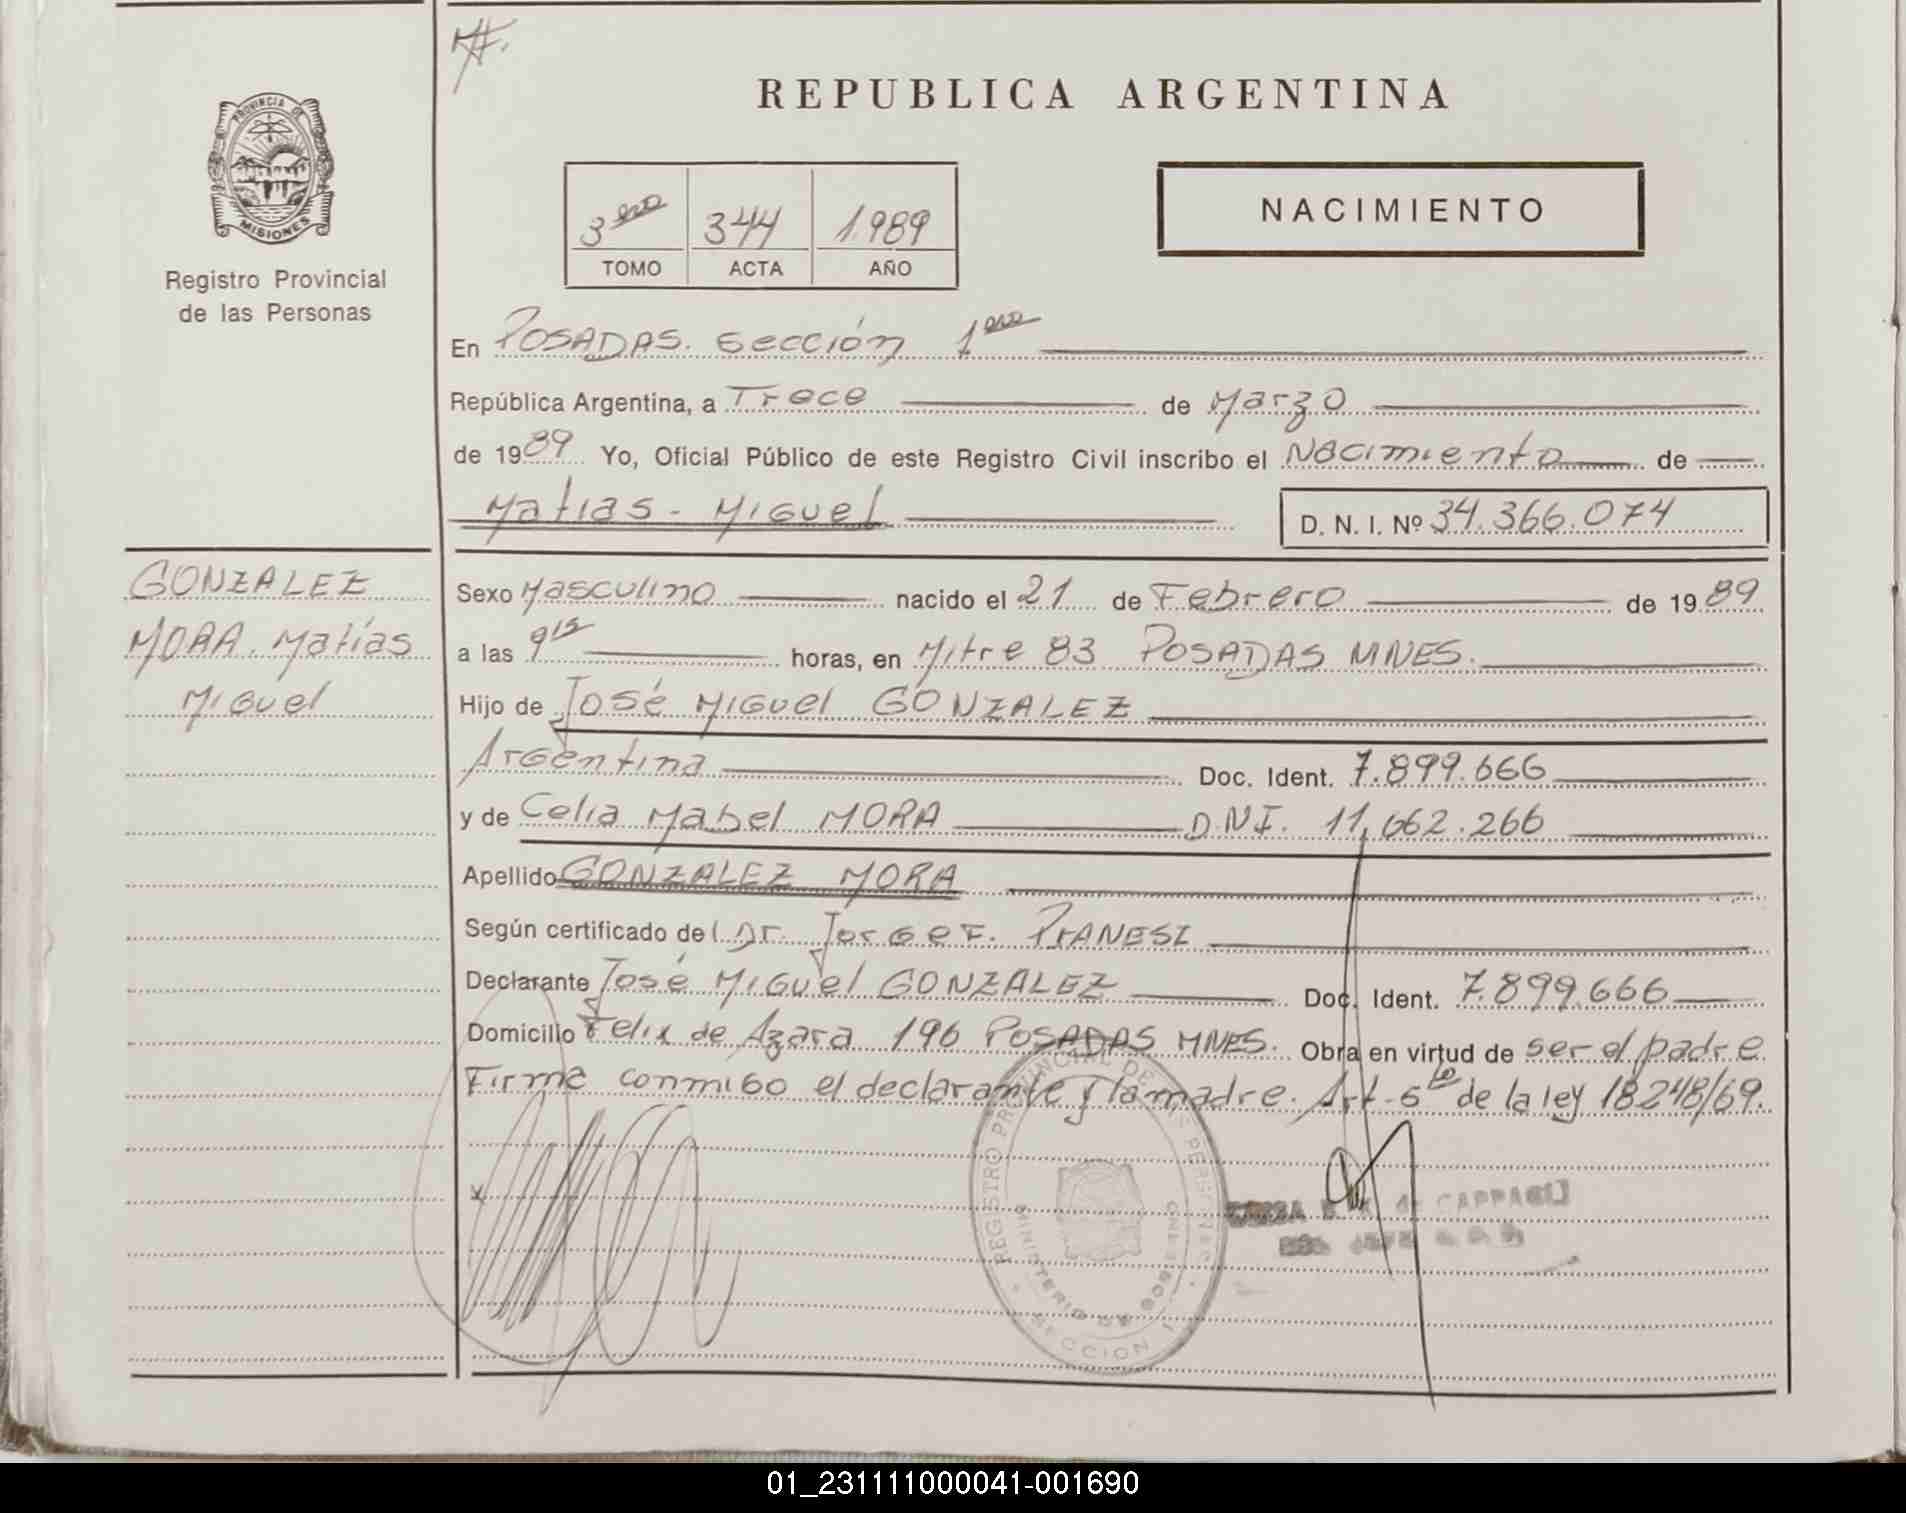 REPUBLICA ARGENTINA
PROVINCIA DE
MISIONES
Registro Provincial
de las Personas
3ero 344 1.989
TOMO ACTA AÑO
NACIMIENTO
En POSADAS. Sección 1era
República Argentina, a Trece de Marzo
de 1989 Yo, Oficial Público de este Registro Civil inscribo el Nacimiento de
Matias - Miguel D. N. I. Nº 34.366.074
GONZALEZ
MORA. Matías
Miguel
Sexo Masculino nacido el 21 de Febrero de 1989
a las 9 15 horas, en Mitre 83 POSADAS MNES.
Hijo de José Miguel GONZALEZ
Argentina Doc. Ident. 7.899.666
y de Celia Mabel MORA D.N.I. 11,662.266
Apellido GONZALEZ MORA
Según certificado del Dr. Jorge F. PIANESI
Declarante José Miguel GONZALEZ Doc. Ident. 7.899.666
Domicilio Felix de Azara 196 POSADAS MNES. Obra en virtud de ser el padre
Firma conmigo el declarante y la madre. Art-5to de la ley 18248/69.
REGISTRO PROVINCIAL DE LAS PERSONAS
MINISTERIO DE GOBIERNO
SECCION 1
de CAPPAGLI
01_231111000041-001690